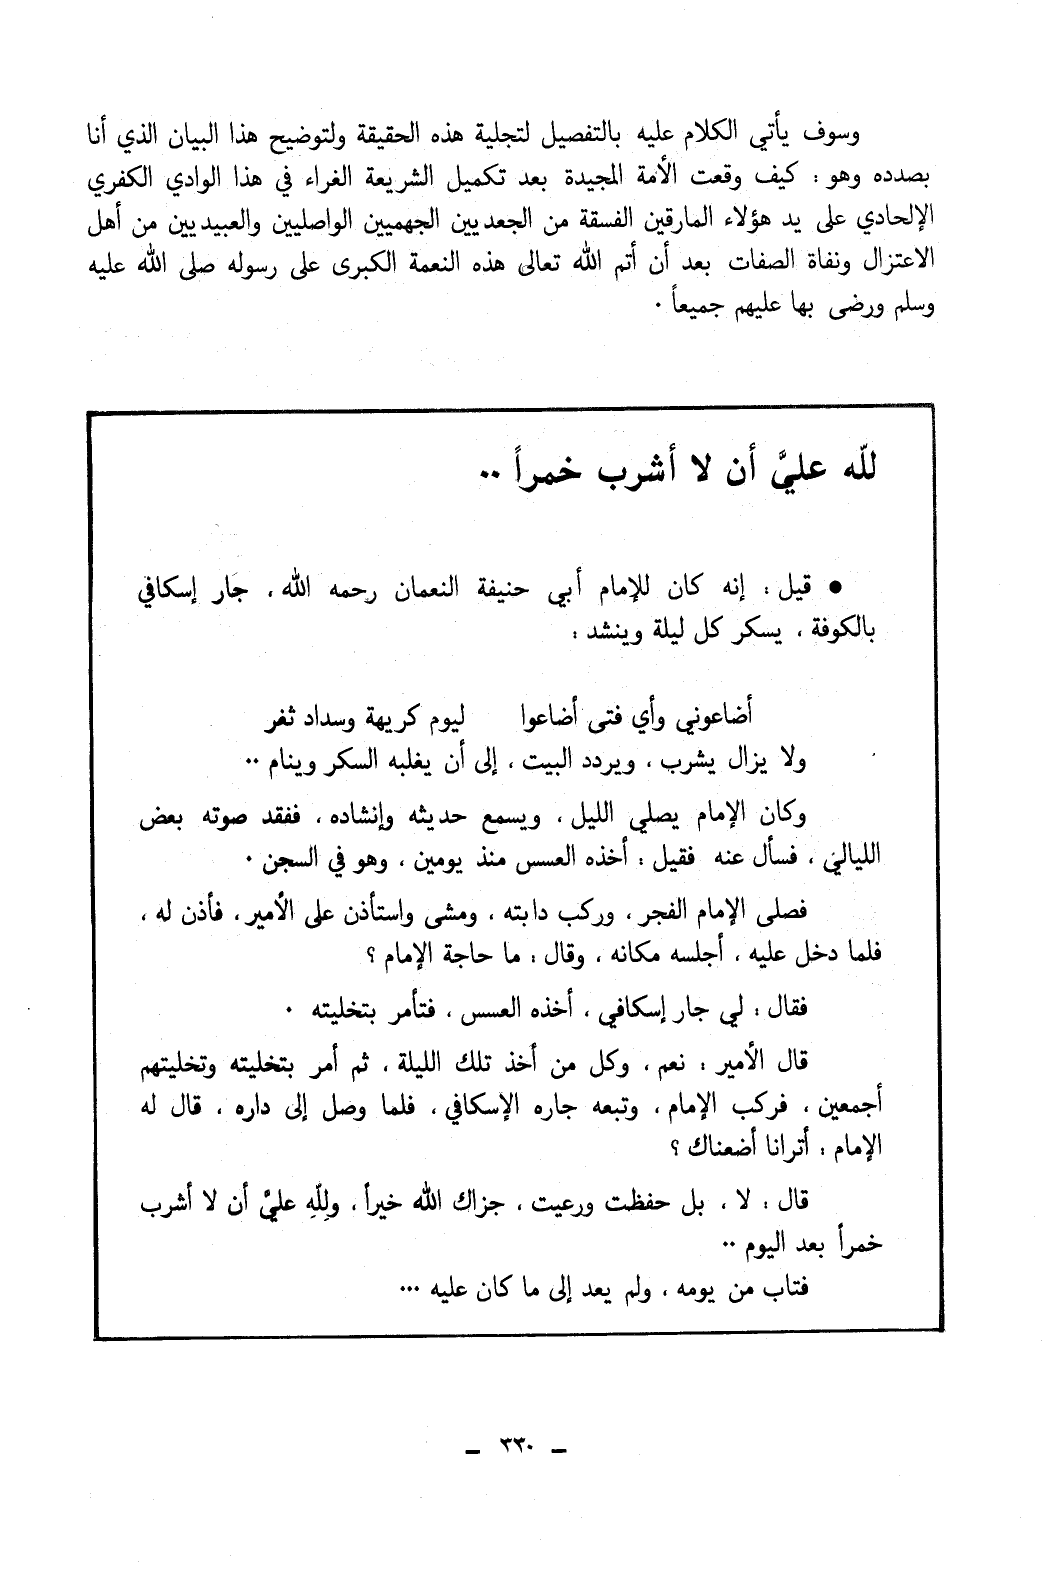 وسوف يأتي الكلام عليه بالتفصيل لتجلية هذه الحقيقة ولتوضيح هذا البيان الذي أنا
بصدده وهو : كيف وقعت الأمة المجيدة بعد تكميل الشريعة الغراء في هذا الوادي الكفري
الإلحادي على يد هؤلاء المارقين الفسقة من الجعديين الجهميين الواصليين والعبيديين من أهل
الاعتزال ونفاة الصفات بعد أن أتم الله تعالى هذه النعمة الكبرى على رسوله صلى الله عليه
وسلم ورضى بها عليهم جميعاً ٠
لله عليَّ أن لا أشرب خمراً ٠٠
● قيل : إنه كان للإمام أبي حنيفة النعمان رحمه الله ، جَار إسكافي
بالكوفة ، يسكر كل ليلة وينشد :
أضاعوني وأي فتى أضاعوا ليوم كريهة وسداد ثغر
ولا يزال يشرب ، ويردد البيت ، إلى أن يغلبه السكر وينام ٠٠
وكان الإمام يصلي الليل ، ويسمع حديثه وإنشاده ، ففقد صوته بعض
الليالي ، فسأل عنه فقيل : أخذه العسس منذ يومين ، وهو في السجن ٠
فصلى الإمام الفجر ، وركب دابته ، ومشى واستأذن على الأمير ، فأذن له ،
فلما دخل عليه ، أجلسه مكانه ، وقال : ما حاجة الإمام ؟
فقال : لي جار إسكافي ، أخذه العسس ، فتأمر بتخليته ٠
قال الأمير : نعم ، وكل من أخذ تلك الليلة ، ثم أمر بتخليته وتخليتهم
أجمعين ، فركب الإمام ، وتبعه جاره الإسكافي ، فلما وصل إلى داره ، قال له
الإمام : أترانا أضعناك ؟
قال : لا ، بل حفظت ورعيت ، جزاك الله خيراً ، ولِلّهِ عليَّ أن لا أشرب
خمراً بعد اليوم ٠٠
فتاب من يومه ، ولم يعد إلى ما كان عليه ٠٠٠
– ٣٣٠ –